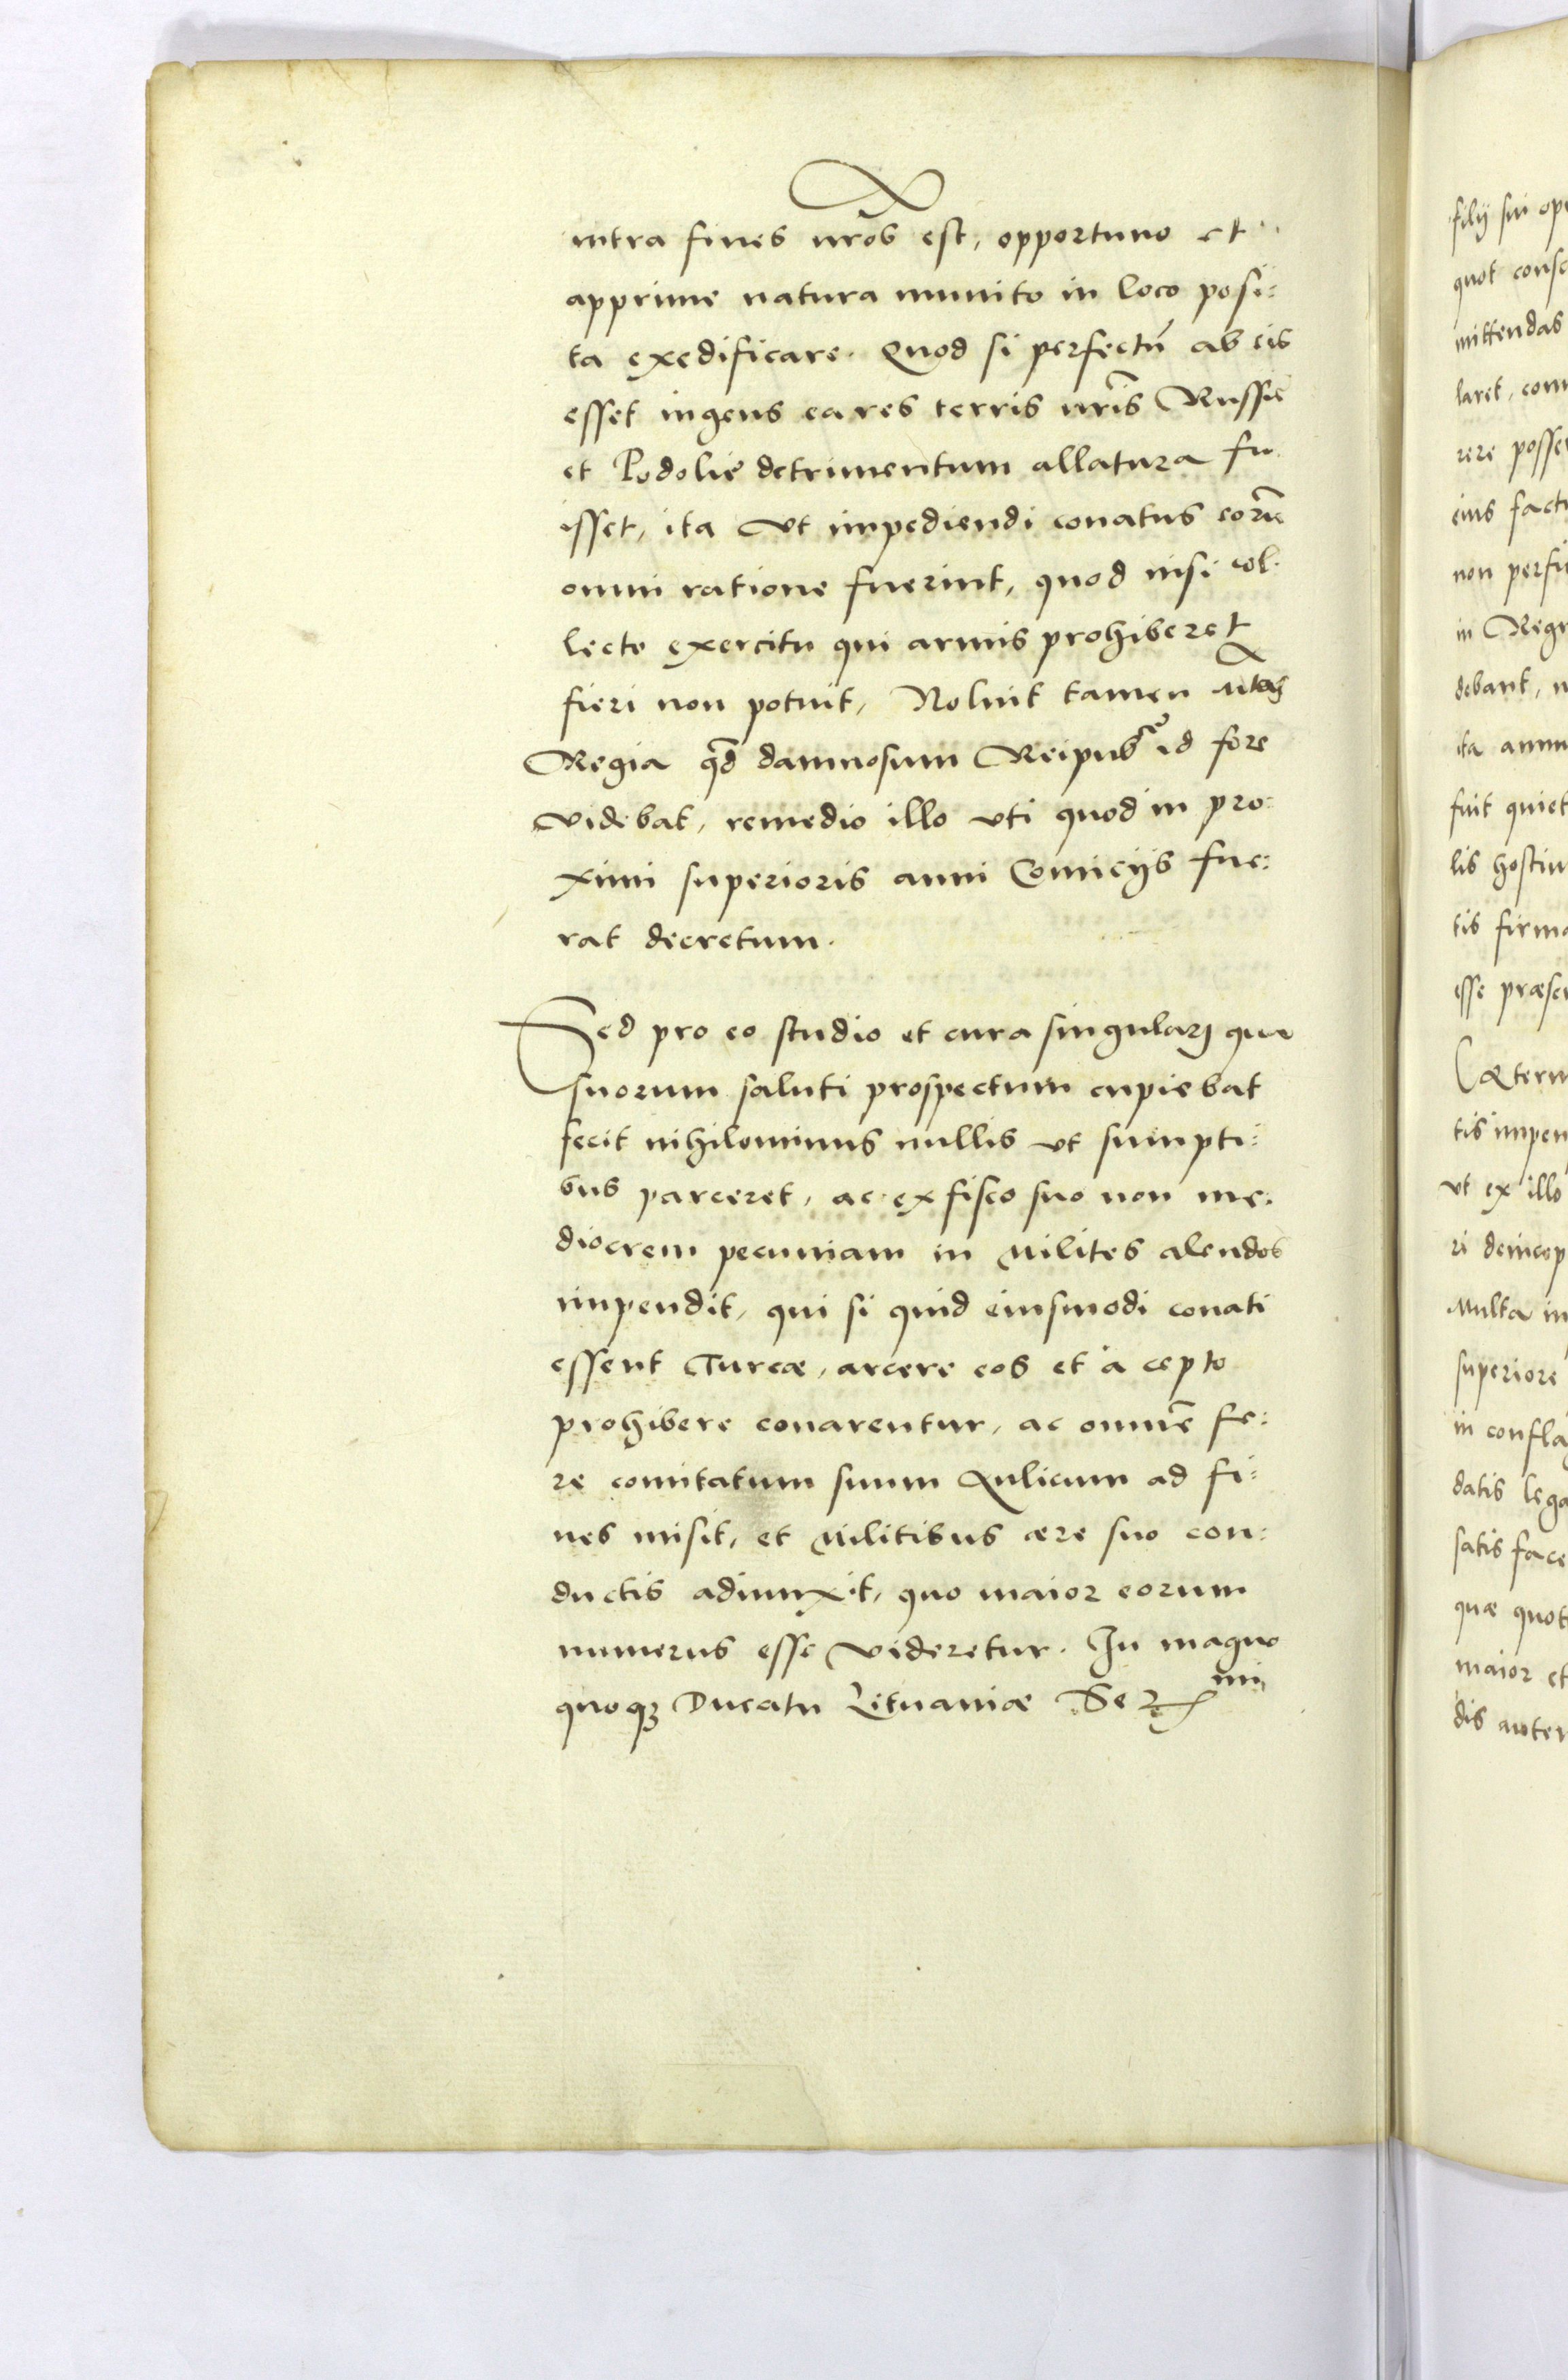 intra fines nr̃os est, opportuno et
apprime natura munito in loco posi:
ta exedificare. Quod si perfectũ ab eis
esset ingens ea res terris nr̃is Russie
et Podolie detrimentum allatura fu
isset, ita vt impediendi conatus eorũ
omni ratione fuerint, quod nisi col:
lecto exercitu qui armis prohiberet
fieri non potuit, Noluit tamen Mtas
Regia qd̃ damnosum Reipub. id fore
videbat, remedio illo vti quod in pro:
ximi superioris anni Comicijs fue:
rat decretum.
Sed pro eo studio et cura singulari qua
suorum saluti prospectum cupiebat
fecit nihilominus nullis vt sumpti:
bus parceret, ac ex fisco suo non me:
diocrem pecuniam in Milites alendos
impendit, qui si quid eiusmodi conati
essent Turcæ, arcere eos et à cepto
prohibere conarentur, ac omnẽ fe:
re comitatum suum Aulicum ad fi:
nes misit, et Militibus ære suo con:
ductis adiunxit, quo maior eorum
numerus esse videretur. In magno
quoq3 Ducatu Lituaniæ Ser mi
filij sui
quot
mittendas
laret,
rere
eius
non
in
debant,
ita
fuit
lis
tis
esse
tis
vt ex illo
ri
Multa
superiore
in
datis
satis
quæ
maior et
dis